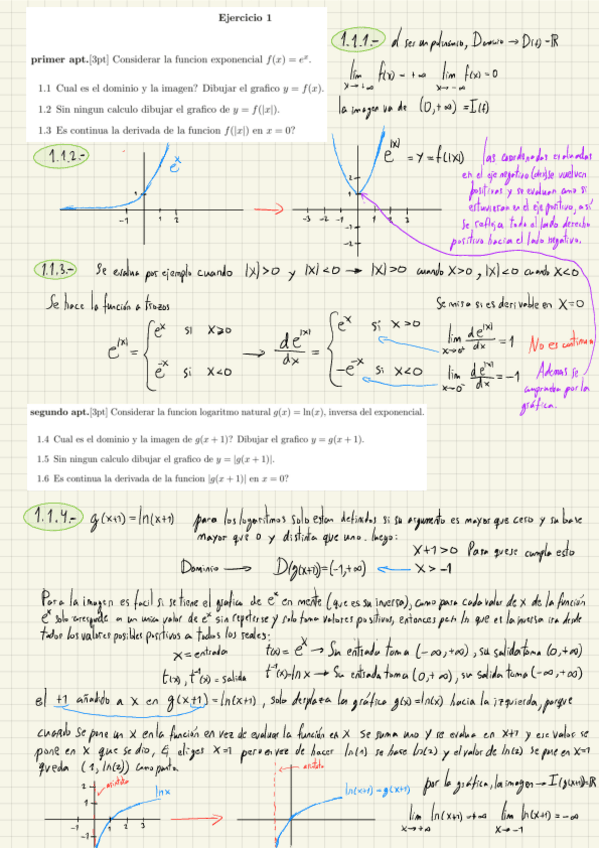 Ejercicio 1
primer apt.[3pt] Considerar la funcion exponencial f(x) = eˣ.
1.1 Cual es el dominio y la imagen? Dibujar el grafico y = f(x).
1.2 Sin ningun calculo dibujar el grafico de y = f(|x|).
1.3 Es continua la derivada de la funcion f(|x|) en x = 0?
1.1.1.- al ser un polinomio, Dominio → D(f) = ℝ
lim x→+∞ f(x) = +∞ lim x→-∞ f(x) = 0
la imagen va de (0,+∞) = I(f)
1.1.2.-
eˣ
-1 1 2
1
e^|x| = y = f(|x|)
-3 -2 -1 1 2 3
2
1
-1
las coordenadas evaluadas
en el eje negativo se vuelven
positivas y se evaluan como si
estuvieran en el eje positivo, así
se refleja todo el lado derecho
positivo hacia el lado negativo.
1.1.3.- Se evalua por ejemplo cuando |x|>0 y |x|<0 → |x|>0 cuando x>0, |x|<0 cuando x<0
Se hace la función a trozos
Se mira si es derivable en x=0
e^|x| = { eˣ si x⩾0
e^-x si x<0
→ de^|x|/dx = { eˣ si x>0
-e^-x si x<0
lim x→0⁺ de^|x|/dx = 1
lim x→0⁻ de^|x|/dx = -1
No es continua
Ademas se
comprueba por la
gráfica.
segundo apt.[3pt] Considerar la funcion logaritmo natural g(x) = ln(x), inversa del exponencial.
1.4 Cual es el dominio y la imagen de g(x + 1)? Dibujar el grafico y = g(x + 1).
1.5 Sin ningun calculo dibujar el grafico de y = |g(x + 1)|.
1.6 Es continua la derivada de la funcion |g(x + 1)| en x = 0?
1.1.4.- g(x+1) = ln(x+1) para los logaritmos solo estan definidos si su argumento es mayor que cero y su base
mayor que 0 y distinta que uno. luego:
x+1>0 Para que se cumpla esto
Dominio → D(g(x+1)) = (-1,+∞) ← x > -1
Para la imagen es facil si se tiene la grafica de eˣ en mente (que es su inversa), como para cada valor de x de la función
eˣ solo corresponde a un unico valor de eˣ sin repetirse y solo toma valores positivos, entonces para ln que es la inversa ira desde
todos los valores posibles positivos a todos los reales:
x = entrada f(x) = eˣ → Su entrada toma (-∞,+∞), su salida toma (0,+∞)
f(x), f⁻¹(x) = salida f⁻¹(x) = ln x → Su entrada toma (0,+∞), su salida toma (-∞,+∞)
el +1 añadido a x en g(x+1) = ln(x+1), solo desplaza la gráfica g(x) = ln(x) hacia la izquierda, porque
cuando se pone un x en la función en vez de evaluar la función en x se suma uno y se evalua en x+1 y ese valor se
pone en x que se dio, eliges x=1 pero en vez de hacer ln(1) se hace ln(2) y el valor de ln(2) se pone en x=1
queda (1, ln(2)) como punto.
asíntota
ln x
2
1
-1 1 2 3
-1
asíntota
ln(x+1) = g(x+1)
por la gráfica, la imagen → I(g(x+1)) = ℝ
lim x→+∞ ln(x+1) = +∞ lim x→-1 ln(x+1) = -∞